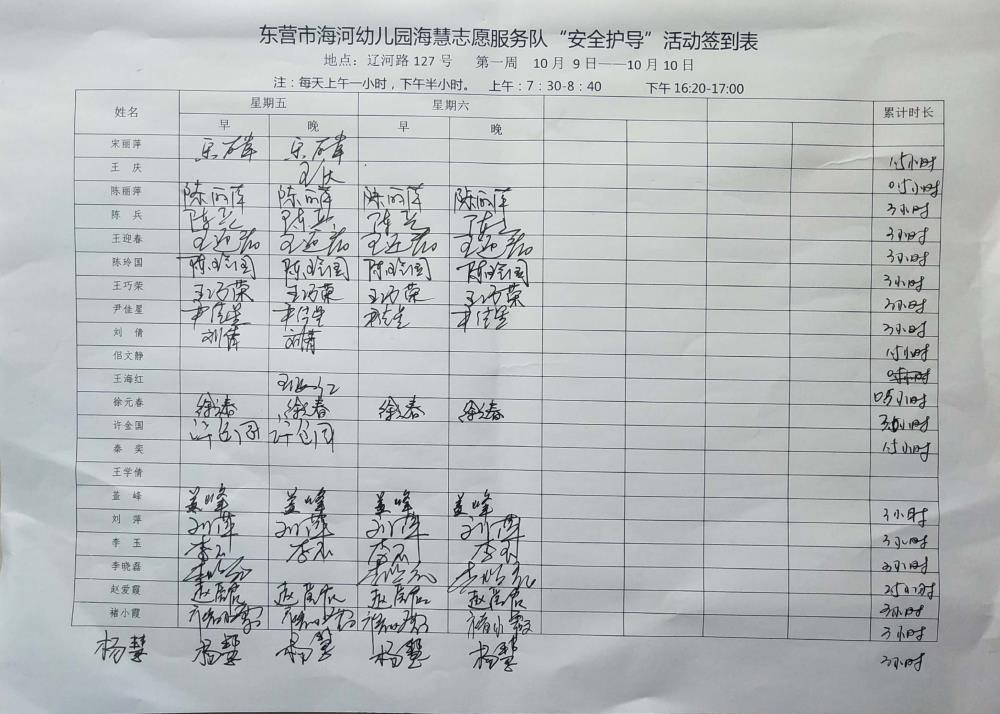 东营市海河幼儿园海慧志愿服务队“安全护导”活动签到表
地点：辽河路 127 号 第一周 10 月 9 日——10 月 10 日
注：每天上午一小时，下午半小时。 上午：7：30-8：40 下午 16:20-17:00
姓名 星期五 星期六 累计时长
早 晚 早 晚
宋丽萍 1.5小时
王 庆 王庆 0.5小时
陈丽萍 陈丽萍 陈丽萍 陈丽萍 陈丽萍 3小时
陈 兵 陈兵 陈兵 陈兵 陈兵 3小时
王迎春 王迎春 王迎春 王迎春 王迎春 3小时
陈玲国 陈玲国 陈玲国 陈玲国 陈玲国 3小时
王巧荣 王巧荣 王巧荣 王巧荣 王巧荣 3小时
尹佳星 尹佳星 尹佳星 尹佳星 尹佳星 3小时
刘 倩 刘倩 刘倩 1.5小时
佀文静
王海红 王海红 0.5小时
徐元春 徐元春 徐元春 徐元春 徐元春 3小时
许金国 许金国 许金国 1.5小时
秦 奕
王学倩
盖 峰 盖峰 盖峰 盖峰 盖峰 3小时
刘 萍 刘萍 刘萍 刘萍 刘萍 3小时
李 玉 李玉 李玉 李玉 李玉 3小时
李晓磊 李晓磊 李晓磊 李晓磊 2.5小时
赵爱霞 3小时
褚小霞 褚小霞 褚小霞 褚小霞 褚小霞 3小时
杨慧 杨慧 杨慧 杨慧 杨慧 3小时